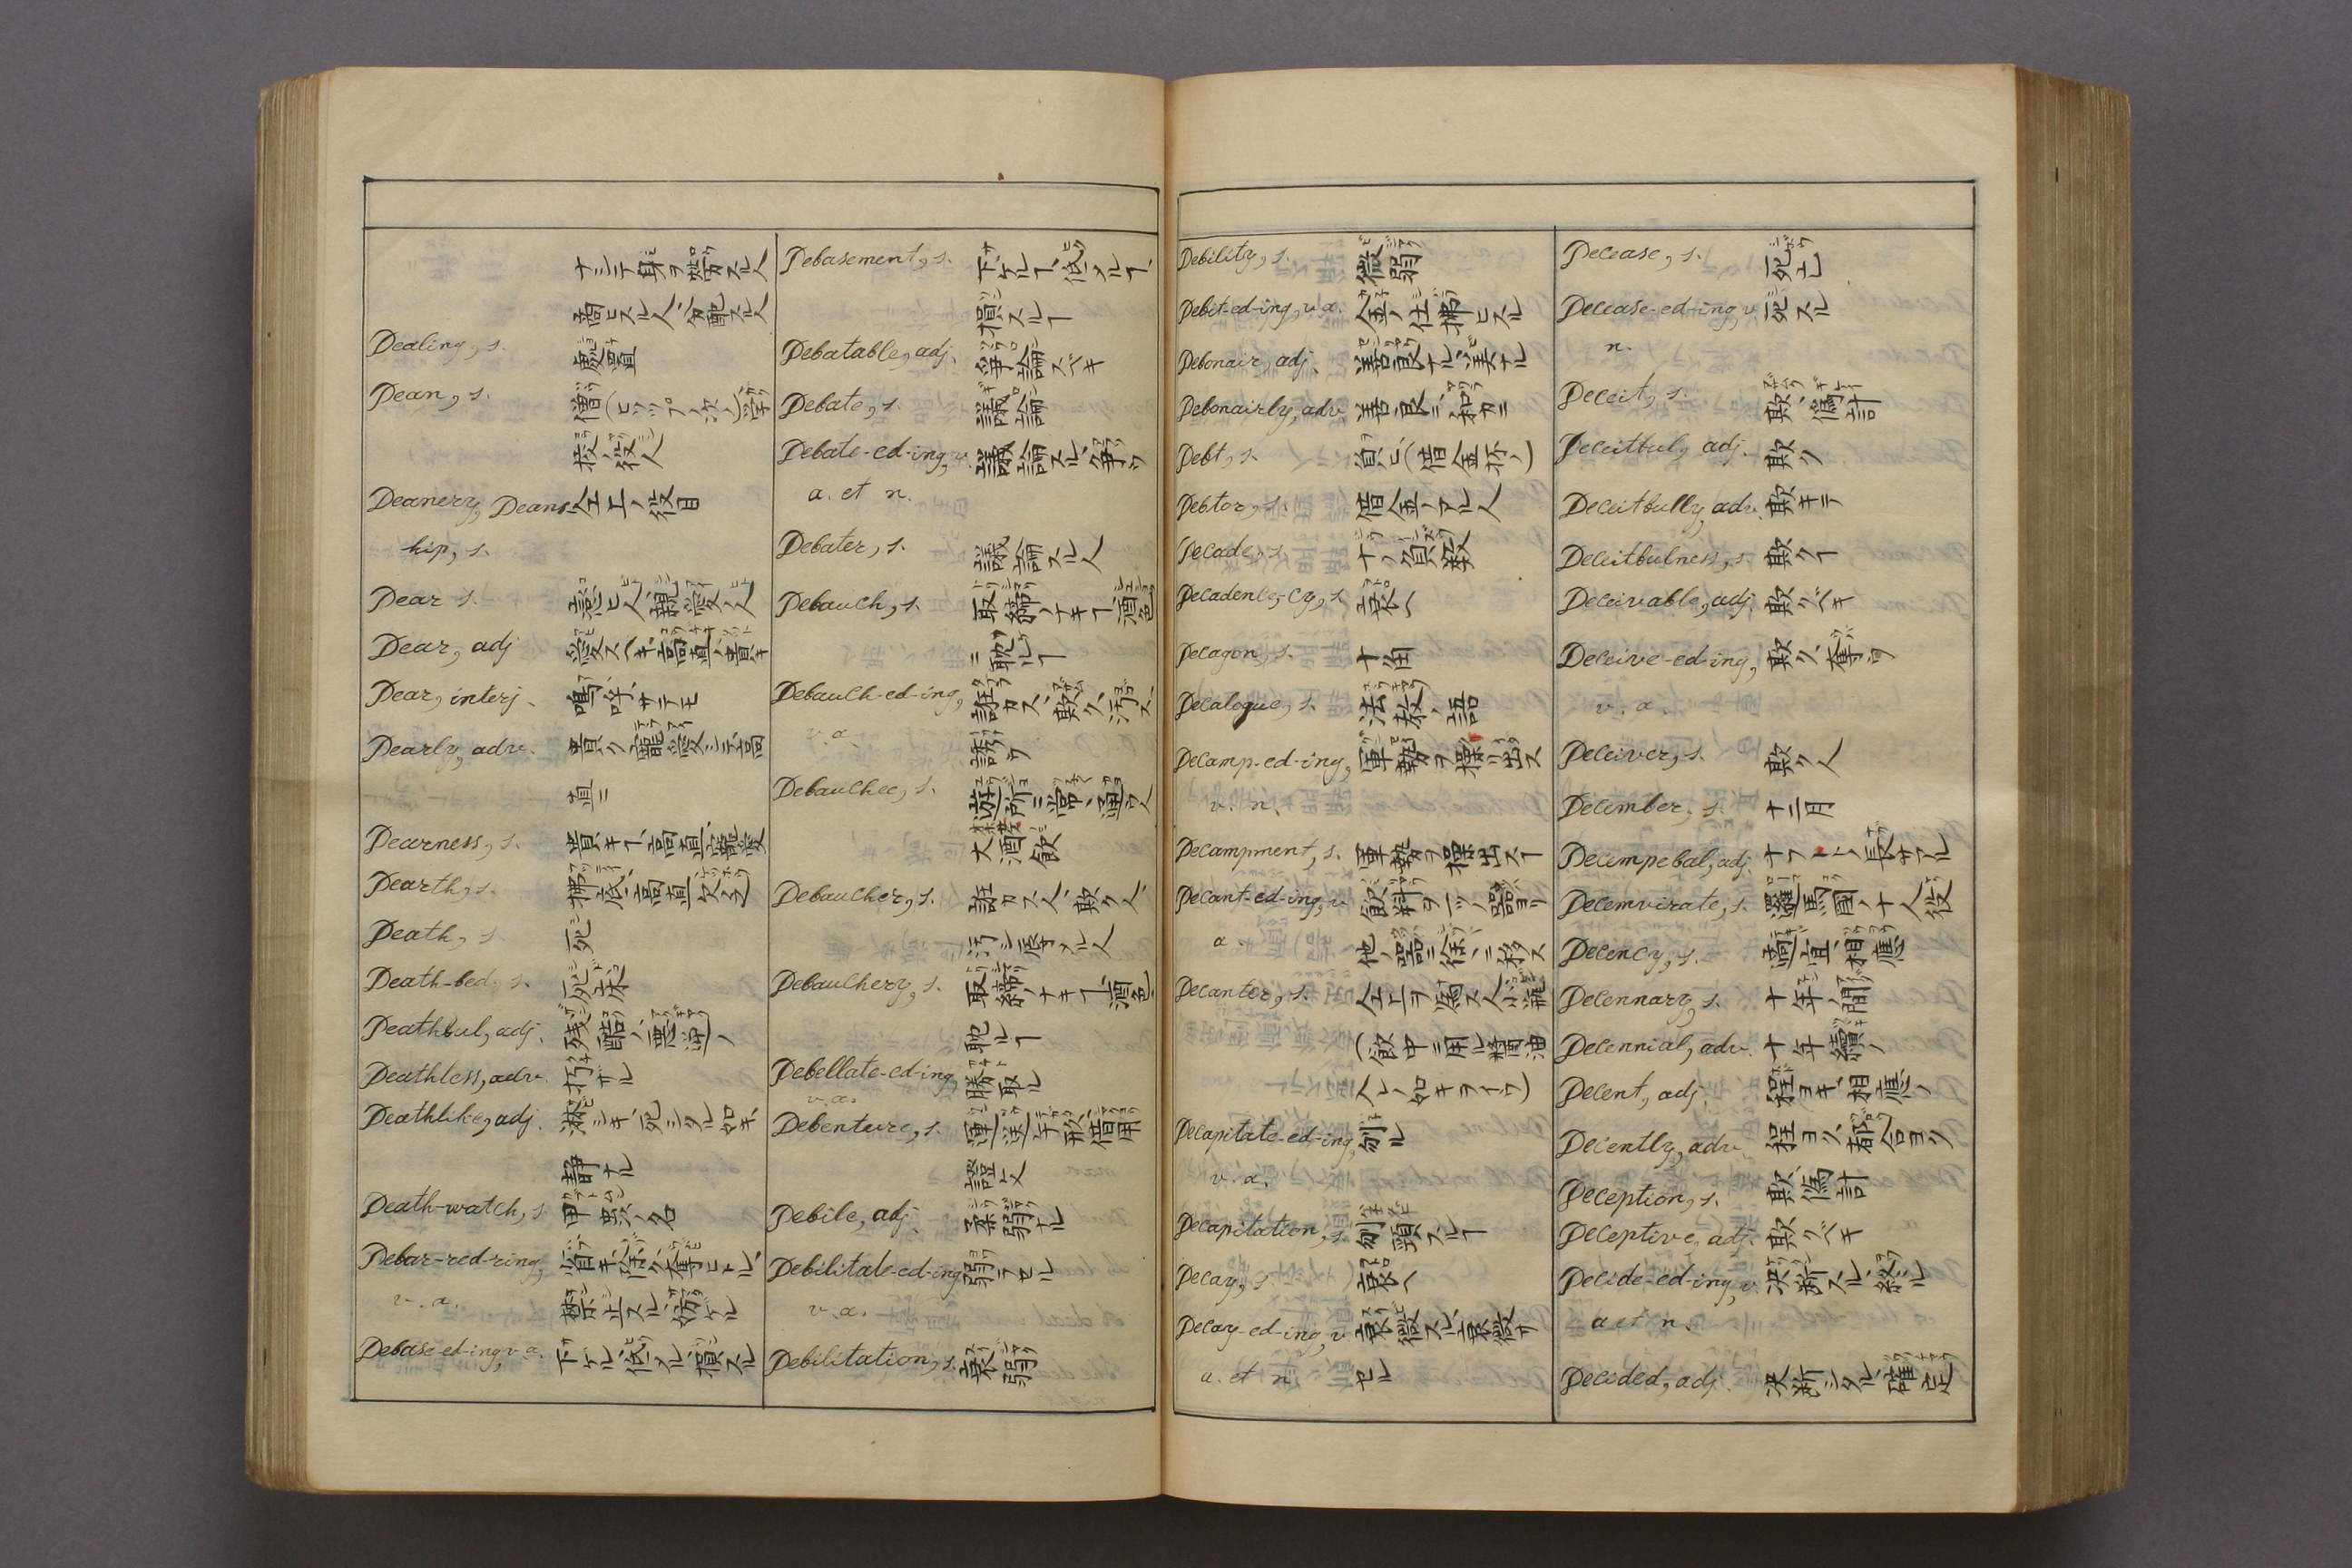 ナシテ身ヲ労スル人
商ヒスル人、分配スル人
Dealing, s. 處置
Dean, s.
役人
Deanery, Deans- 仝上ノ役目
hip, s.
Dear s. 恋人、親愛ノ人
Dear, adj 愛スベキ、高直、貴キ
Dear, interj. 嗚呼、サテモ
Dearly, adv. 貴ク、寵愛シテ、高
直ニ
Dearness, s. 貴キヿ、高直、寵愛
Dearth, s. 拂底、高直、欠乏
Death, s. 死
Death-bed, s. 死床
Deathful, adj. 残酷ノ、悪逆ノ
Deathless, adv. 朽ザル
Deathlike, adj. 淋シキ、死シタル如キ、
静ナル
Death-watch, s. 甲虫ノ名
Debar-red-ring,
v. a. 禁止スル、妨ケル
Debase-ed-ing, v. a. 下ケル、低メル、損スル
Debasement, s. 下ケルヿ、低メルヿ、
損スルヿ
Debatable, adj. 争論スベキ
Debate, s. 議論
Debate-ed-ing, v. 議論スル、争ウ
a. et n.
Debater, s. 議論スル人
Debauch, s. 取締ノナキヿ、酒色
ニ耽ルヿ
Debauch-ed-ing, 誑カス、欺ク、汚ス、
v. a. 誘ウ
Debauchee, s. 遊所ニ常ニ通フ人
大酒飲
Debaucher, s. 誑カス人、欺ク人、
汚シ辱メル人
Debauchery, s. 取締ノナキヿ、酒色
耽ルヿ
Debellate-ed-ing, 勝取ル
v. a.
Debenture, s. 運送手形、借用
證文
Debile, adj. 柔弱ナル
Debilitate-ed-ing 弱ラセル
v. a.
Debilitation, s. 衰弱
Debility, s. 微弱
Debit-ed-ing, v. a. 金ノ仕拂ヒスル
Debonair, adj. 善良ナル、美ナル
Debonairly, adv. 善良ニ、和カニ
Debt, s. 負ヒ(借金抔ノ)
Debtor, s. 借金ノアル人
Decade, s. 十ノ員数
Decadence-cy, s. 衰ヘ
Decagon, s. 十角
Decalogue, s. 法教ノ語
Decamp-ed-ing, 軍勢ヲ操出ス
v. n.
Decampment, s. 軍勢ヲ操出スヿ
Decant-ed-ing, v. 飲料ヲ一ツノ器ヨリ
a. 他ノ器ニ徐ニ移ス
Decanter, s. 仝上ヲ為ス人、小瓶
(飲中ニ用ル醤油
入レノ如キヲイフ)
Decapitate-ed-ing, 刎ル
v. a.
Decapitation, s. 刎頸スルヿ
Decay, s. 衰ヘ
Decay-ed-ing, v. 衰微スル、衰微サ
a. et n. セル
Decease, s. 死亡
Decease-ed-ing, v. 死スル
n.
Deceit, s. 欺、偽計
Deceitful, adj. 欺ク
Deceitfully, adv. 欺キテ
Deceitfulness, s. 欺クヿ
Deceivable, adj. 欺クベキ
Deceive-ed-ing, 欺ク、奪ウ
v. a.
Deceiver, s. 欺ク人
December, s. 十二月
Decempebal, adj.
Decemvirate, s. 羅馬国ノ十人役
Decency, s. 適宜、相應
Decennary, s. 十年ノ間
Decennial, adv. 十年續ノ
Decent, adj. 程ヨキ、相應ノ
Decently, adv. 程ヨク、都合ヨク
Deception, s. 欺、偽計
Deceptive, adj. 欺クベキ
Decide-ed-ing, v. 決断スル、終ル
a et n.
Decided, adj. 決断シタル、確定